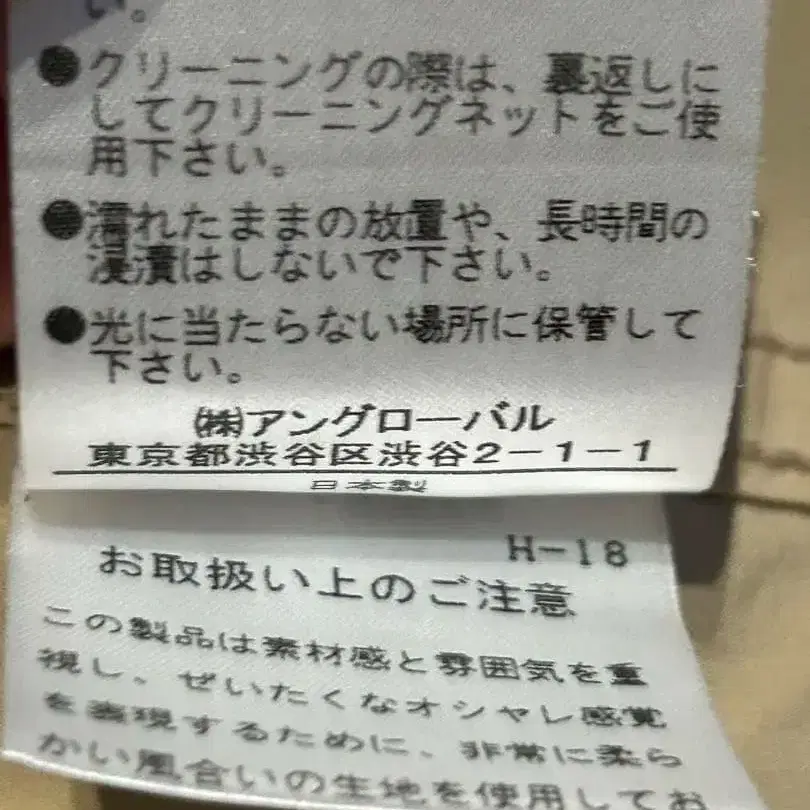 い。
●クリーニングの際は、裏返しに
してクリーニングネットをご使
用下さい。
●濡れたままの放置や、長時間の
浸漬はしないで下さい。
●光に当たらない場所に保管して
下さい。
㈱アングローバル
東京都渋谷区渋谷2-1-1
日本製
H-18
お取扱い上のご注意
この製品は素材感と雰囲気を重
視し、ぜいたくなオシャレ感覚
を表現するために、非常に柔ら
かい風合いの生地を使用してお